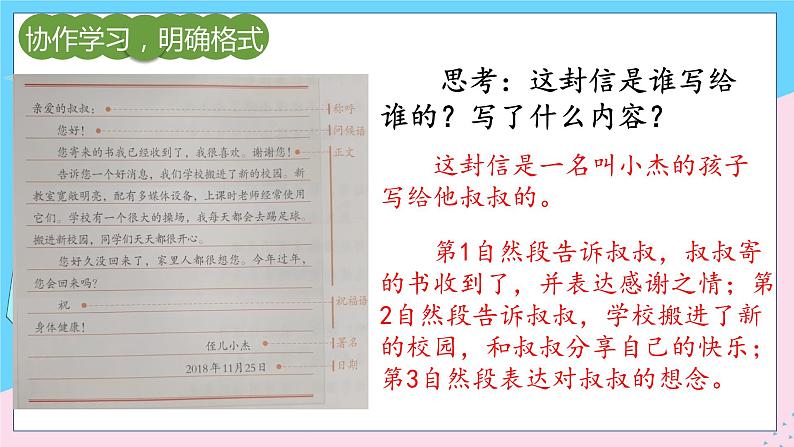 协作学习，明确格式
亲爱的叔叔： 称呼
您好！ 问候语
您寄来的书我已经收到了，我很喜欢。谢谢您！ 正文
告诉您一个好消息，我们学校搬进了新的校园。新
教室宽敞明亮，配有多媒体设备，上课时老师经常使用
它们。学校有一个很大的操场，我每天都会去踢足球。
搬进新校园，同学们天天都很开心。
您好久没回来了，家里人都很想您。今年过年，
您会回来吗？
祝 祝福语
身体健康！
侄儿小杰 署名
2018年11月25日 日期
思考：这封信是谁写给
谁的？写了什么内容？
这封信是一名叫小杰的孩子
写给他叔叔的。
第1自然段告诉叔叔，叔叔寄
的书收到了，并表达感谢之情；第
2自然段告诉叔叔，学校搬进了新
的校园，和叔叔分享自己的快乐；
第3自然段表达对叔叔的想念。